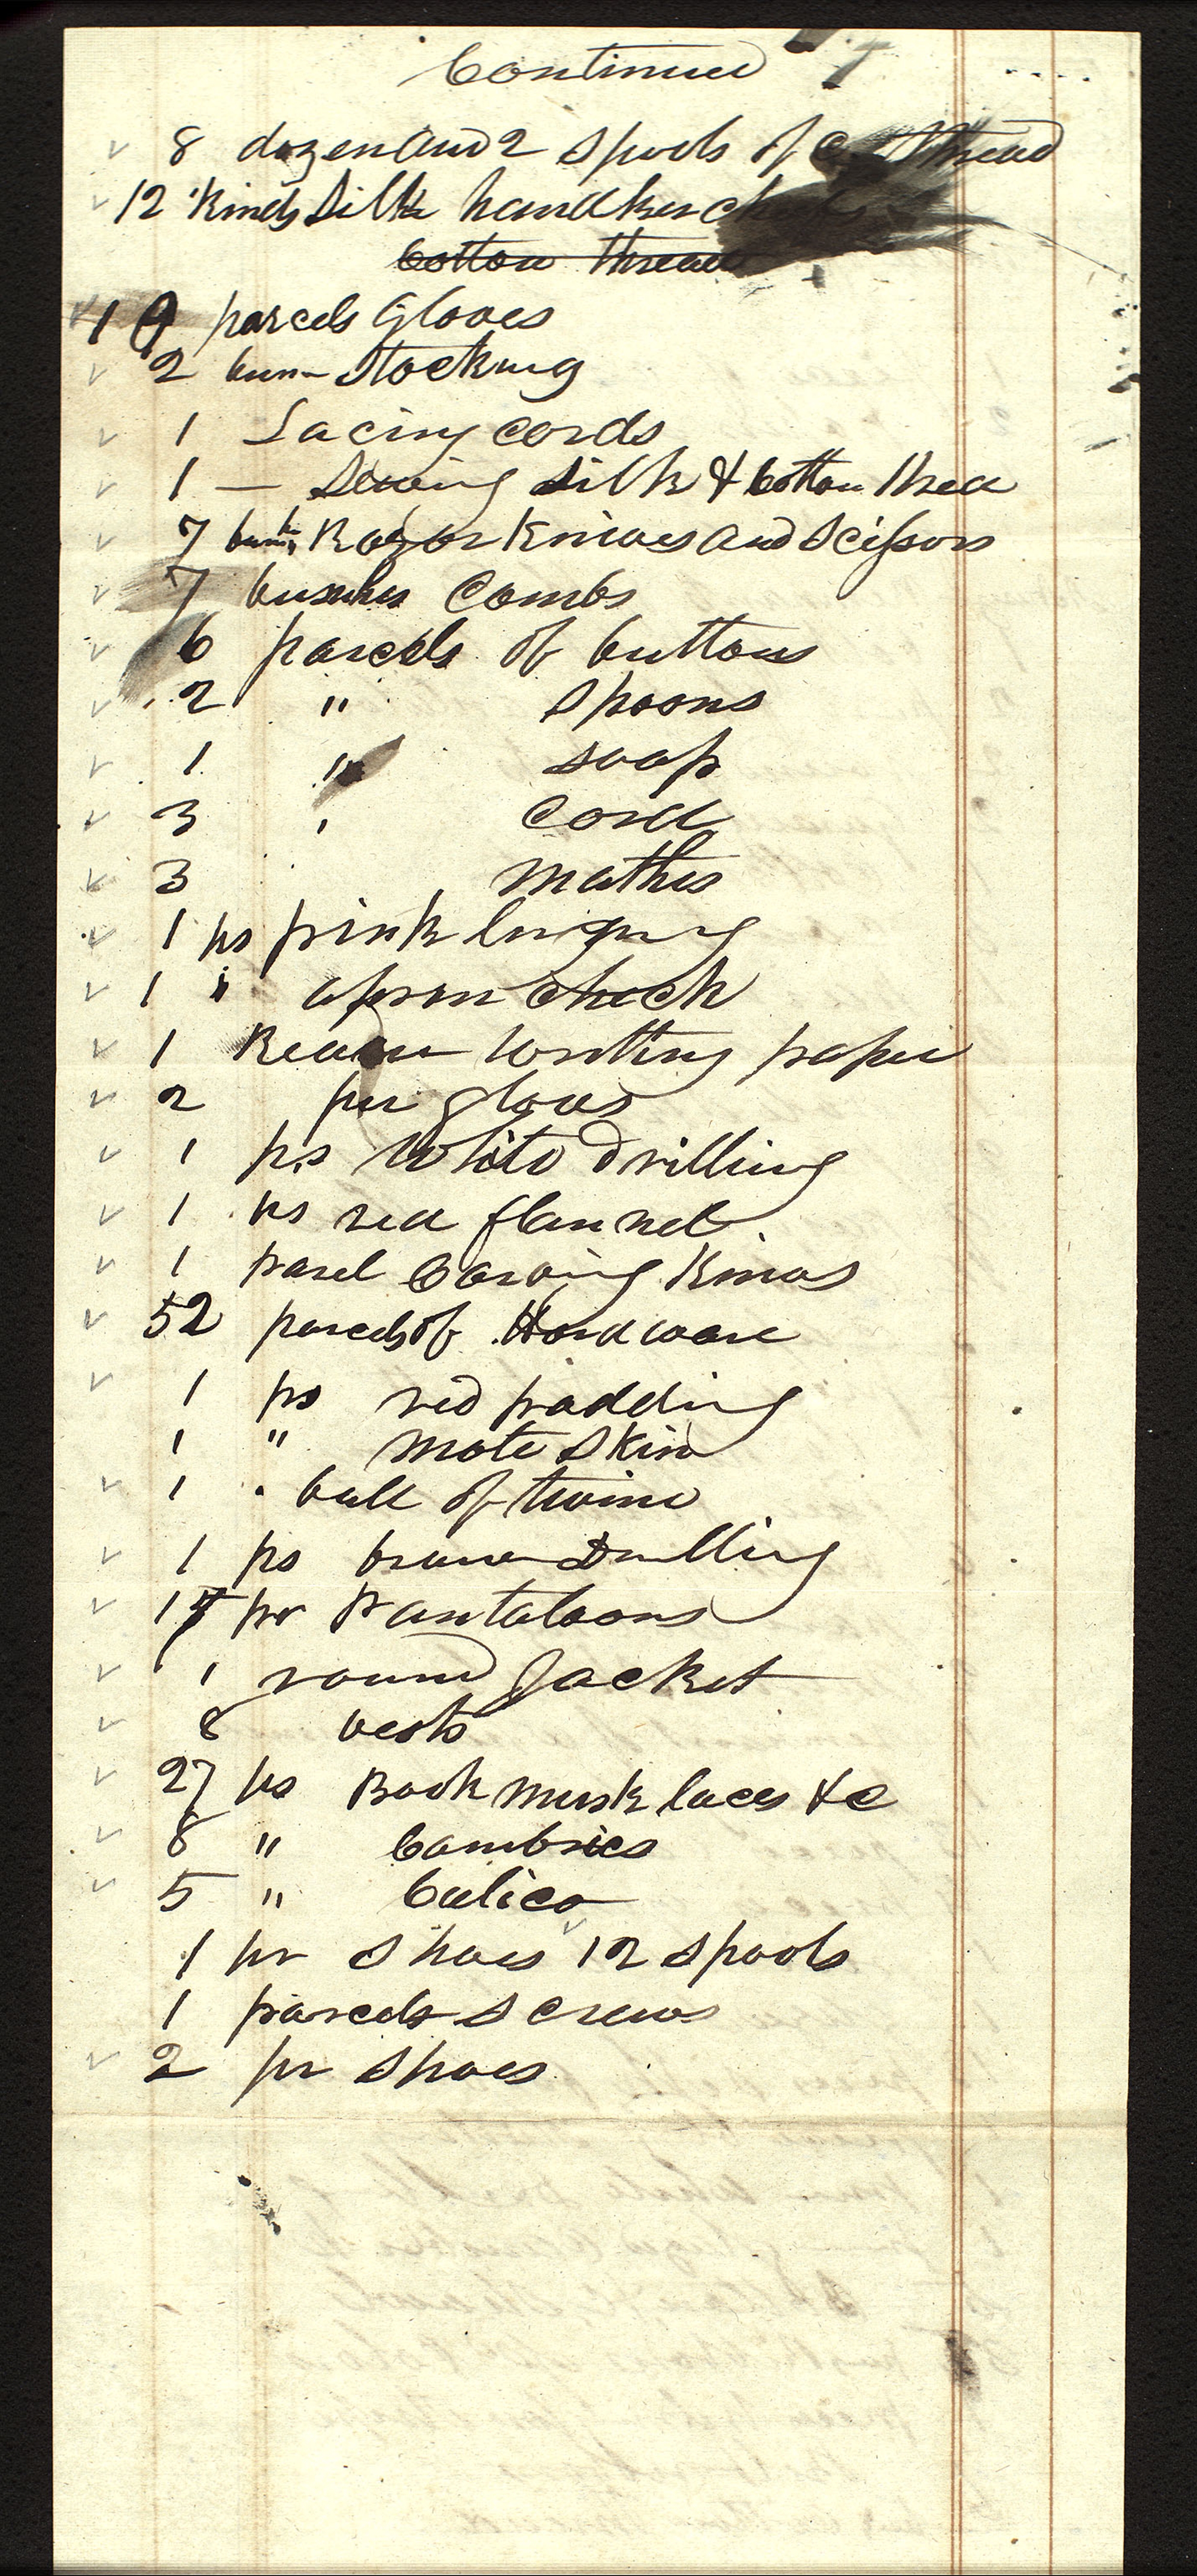 Continued
8 dozen and 2 Spools of thread
12 kinds Silk handkerch
Cotton thread
19 parcels Gloves
2 bun- Stocking
1 Lacing cords
1 — Sewing Silk & Cotton thred
7 Razor Knives and Scissors
7 Combs
6 parcels of buttons
2 " Spoons
1 " soap
3 ' Cord
3 mathes
1 ps pink
1 " apron check
1 Ream writting paper
2 par gloves
1 ps White drilling
1 ps red flannel
1 parcel Carving Knivs
52 parcels of Hardware
1 ps red padding
1 " mole Skin
1 " ball of twine
1 ps brown Drilling
17 pr Pantaloons
1 round Jacket
8 vests
27 ps Book musk laces &c
8 " Cambrics
5 " Calico
1 pr Shoes 12 Spools
1 parcels Screws
2 pr Shoes